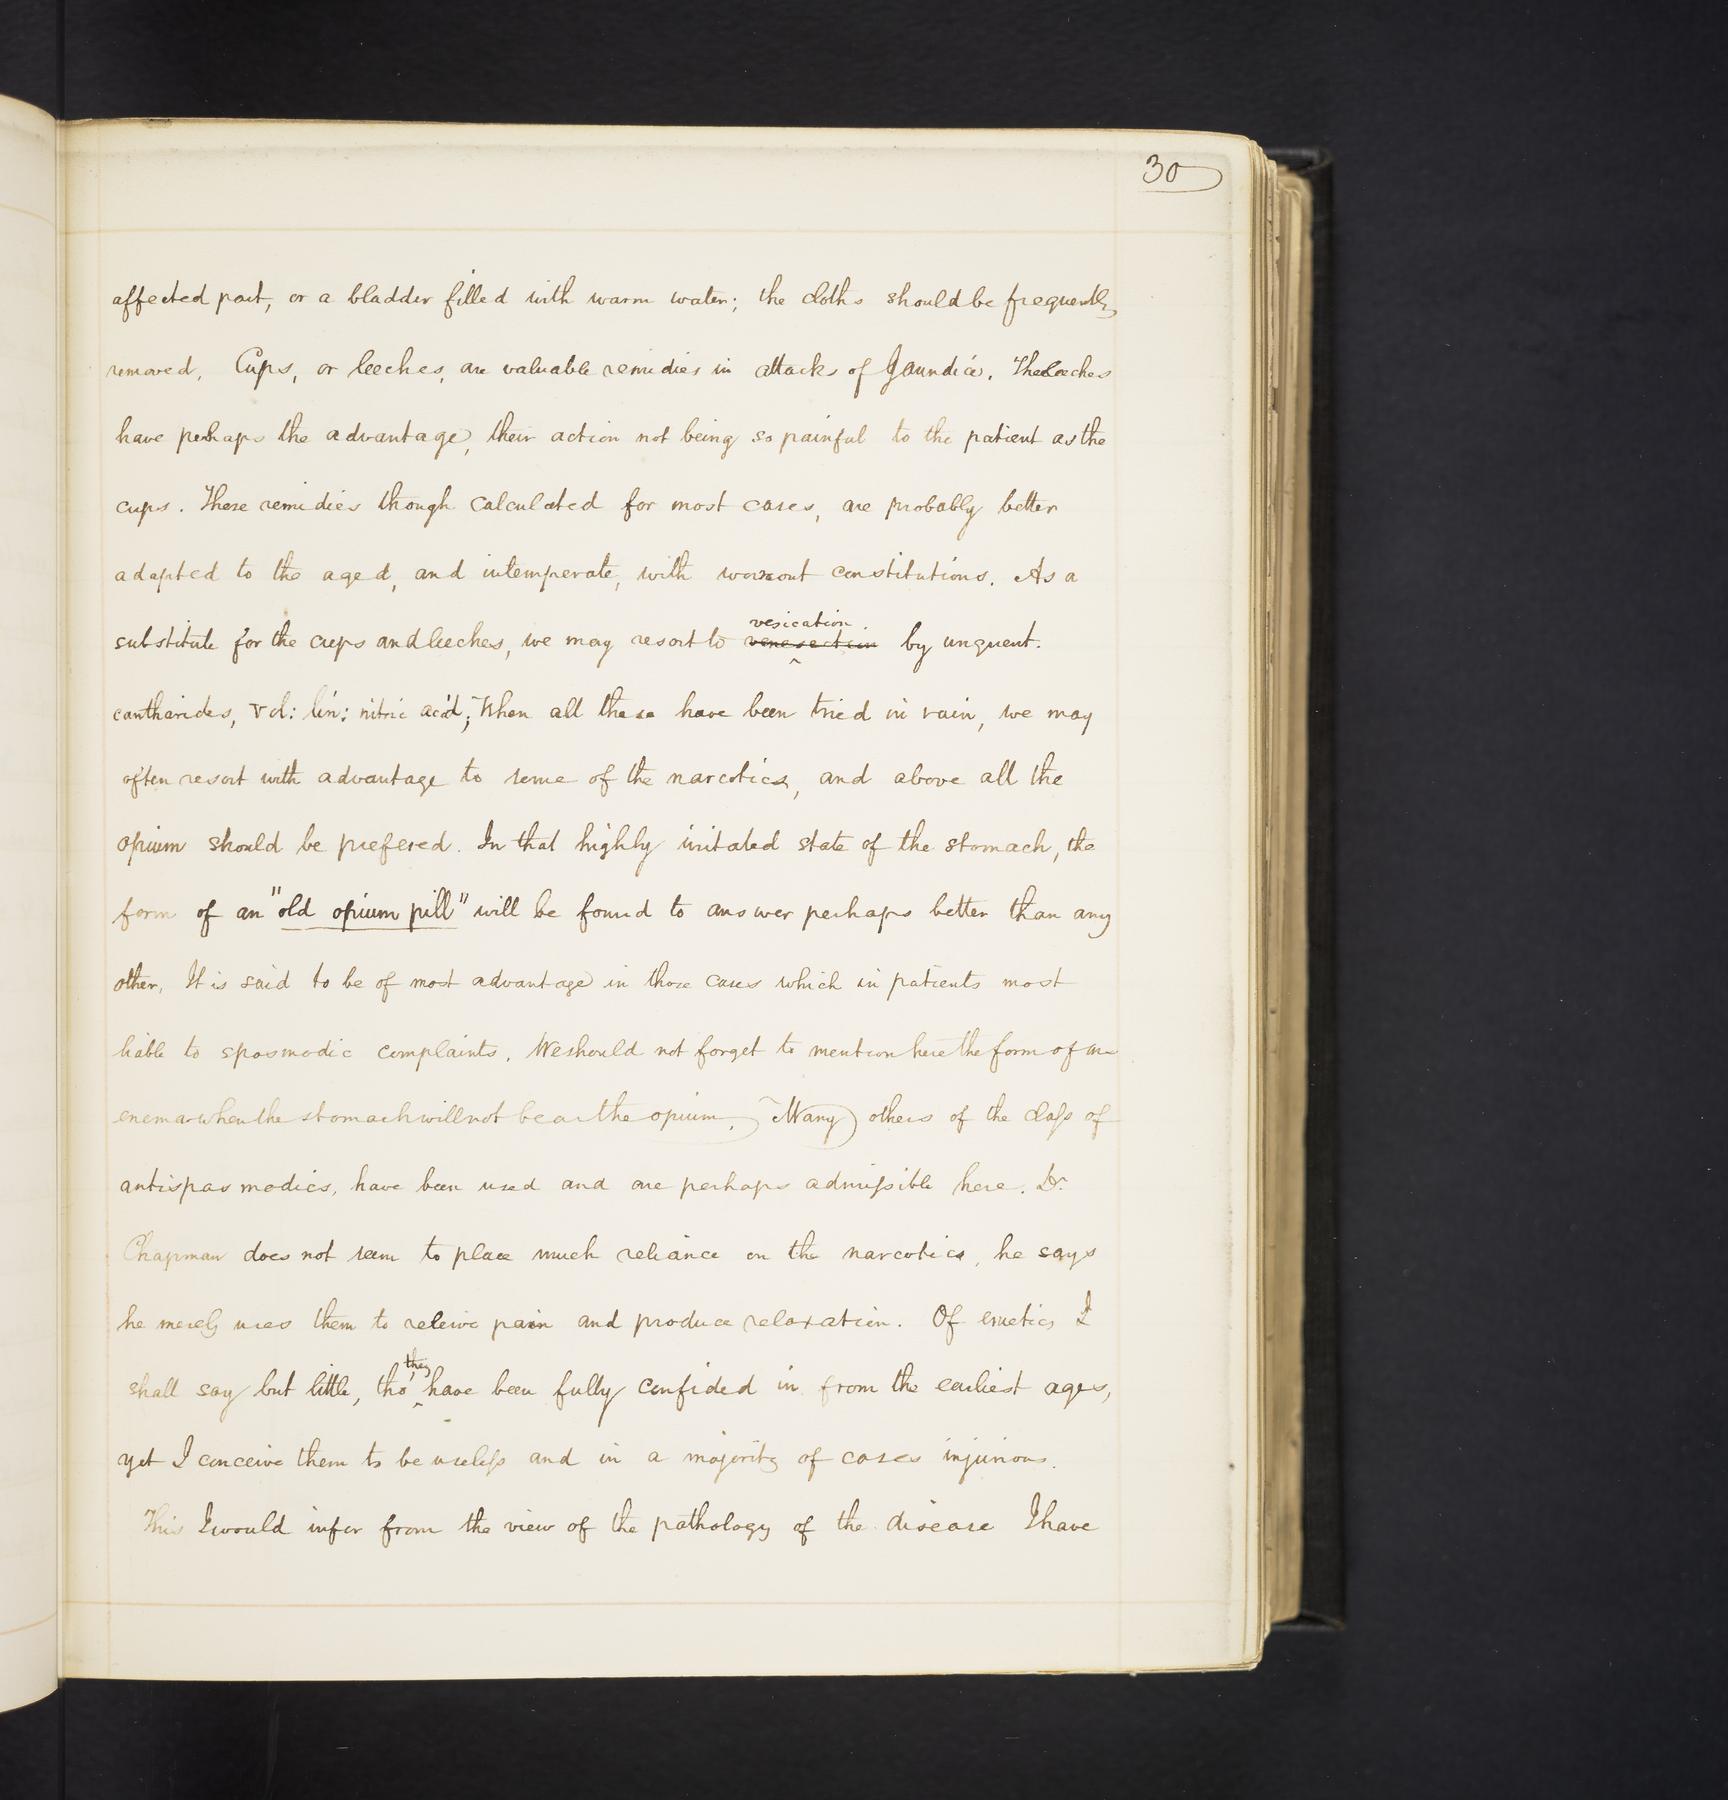 30
affected part, or a bladder filled with warm water; the cloths should be frequently
removed. Cups, or leeches, are valuable remidies in attacks of Jaundice. The leeches
have perhaps the advantage, their action not being so painful to the patient as the
cups. These remidies though calculated for most cases, are probably better
adapted to the aged, and intemperate, with wornout constitutions. As a
substitute for the cups and leeches, we may resort to venesection vesication by unguent.
cantharides, vol: lin: nitric acid; When all these have been tried in vain, we may
often resort with advantage to some of the narcotics, and above all the
opium should be prefered. In that highly irritated state of the stomach, the
form of an "old opium pill" will be found to answer perhaps better than any
other. It is said to be of most advantage in those cases which in patients most
liable to spasmodic complaints. We should not forget to mention here the form of an
enema when the stomach will not bear the opium. Many others of the class of
antispasmodics, have been used and are perhaps admissible here. Dr.
Chapman does not seem to place much reliance on the narcotics, he says
he merely uses them to releive pain and produce relaxation. Of emetics I
shall say but little, tho' they have been fully confided in from the earliest ages,
yet I conceive them to be useless and in a majority of cases injurious.
This I would infer from the view of the pathology of the disease I have